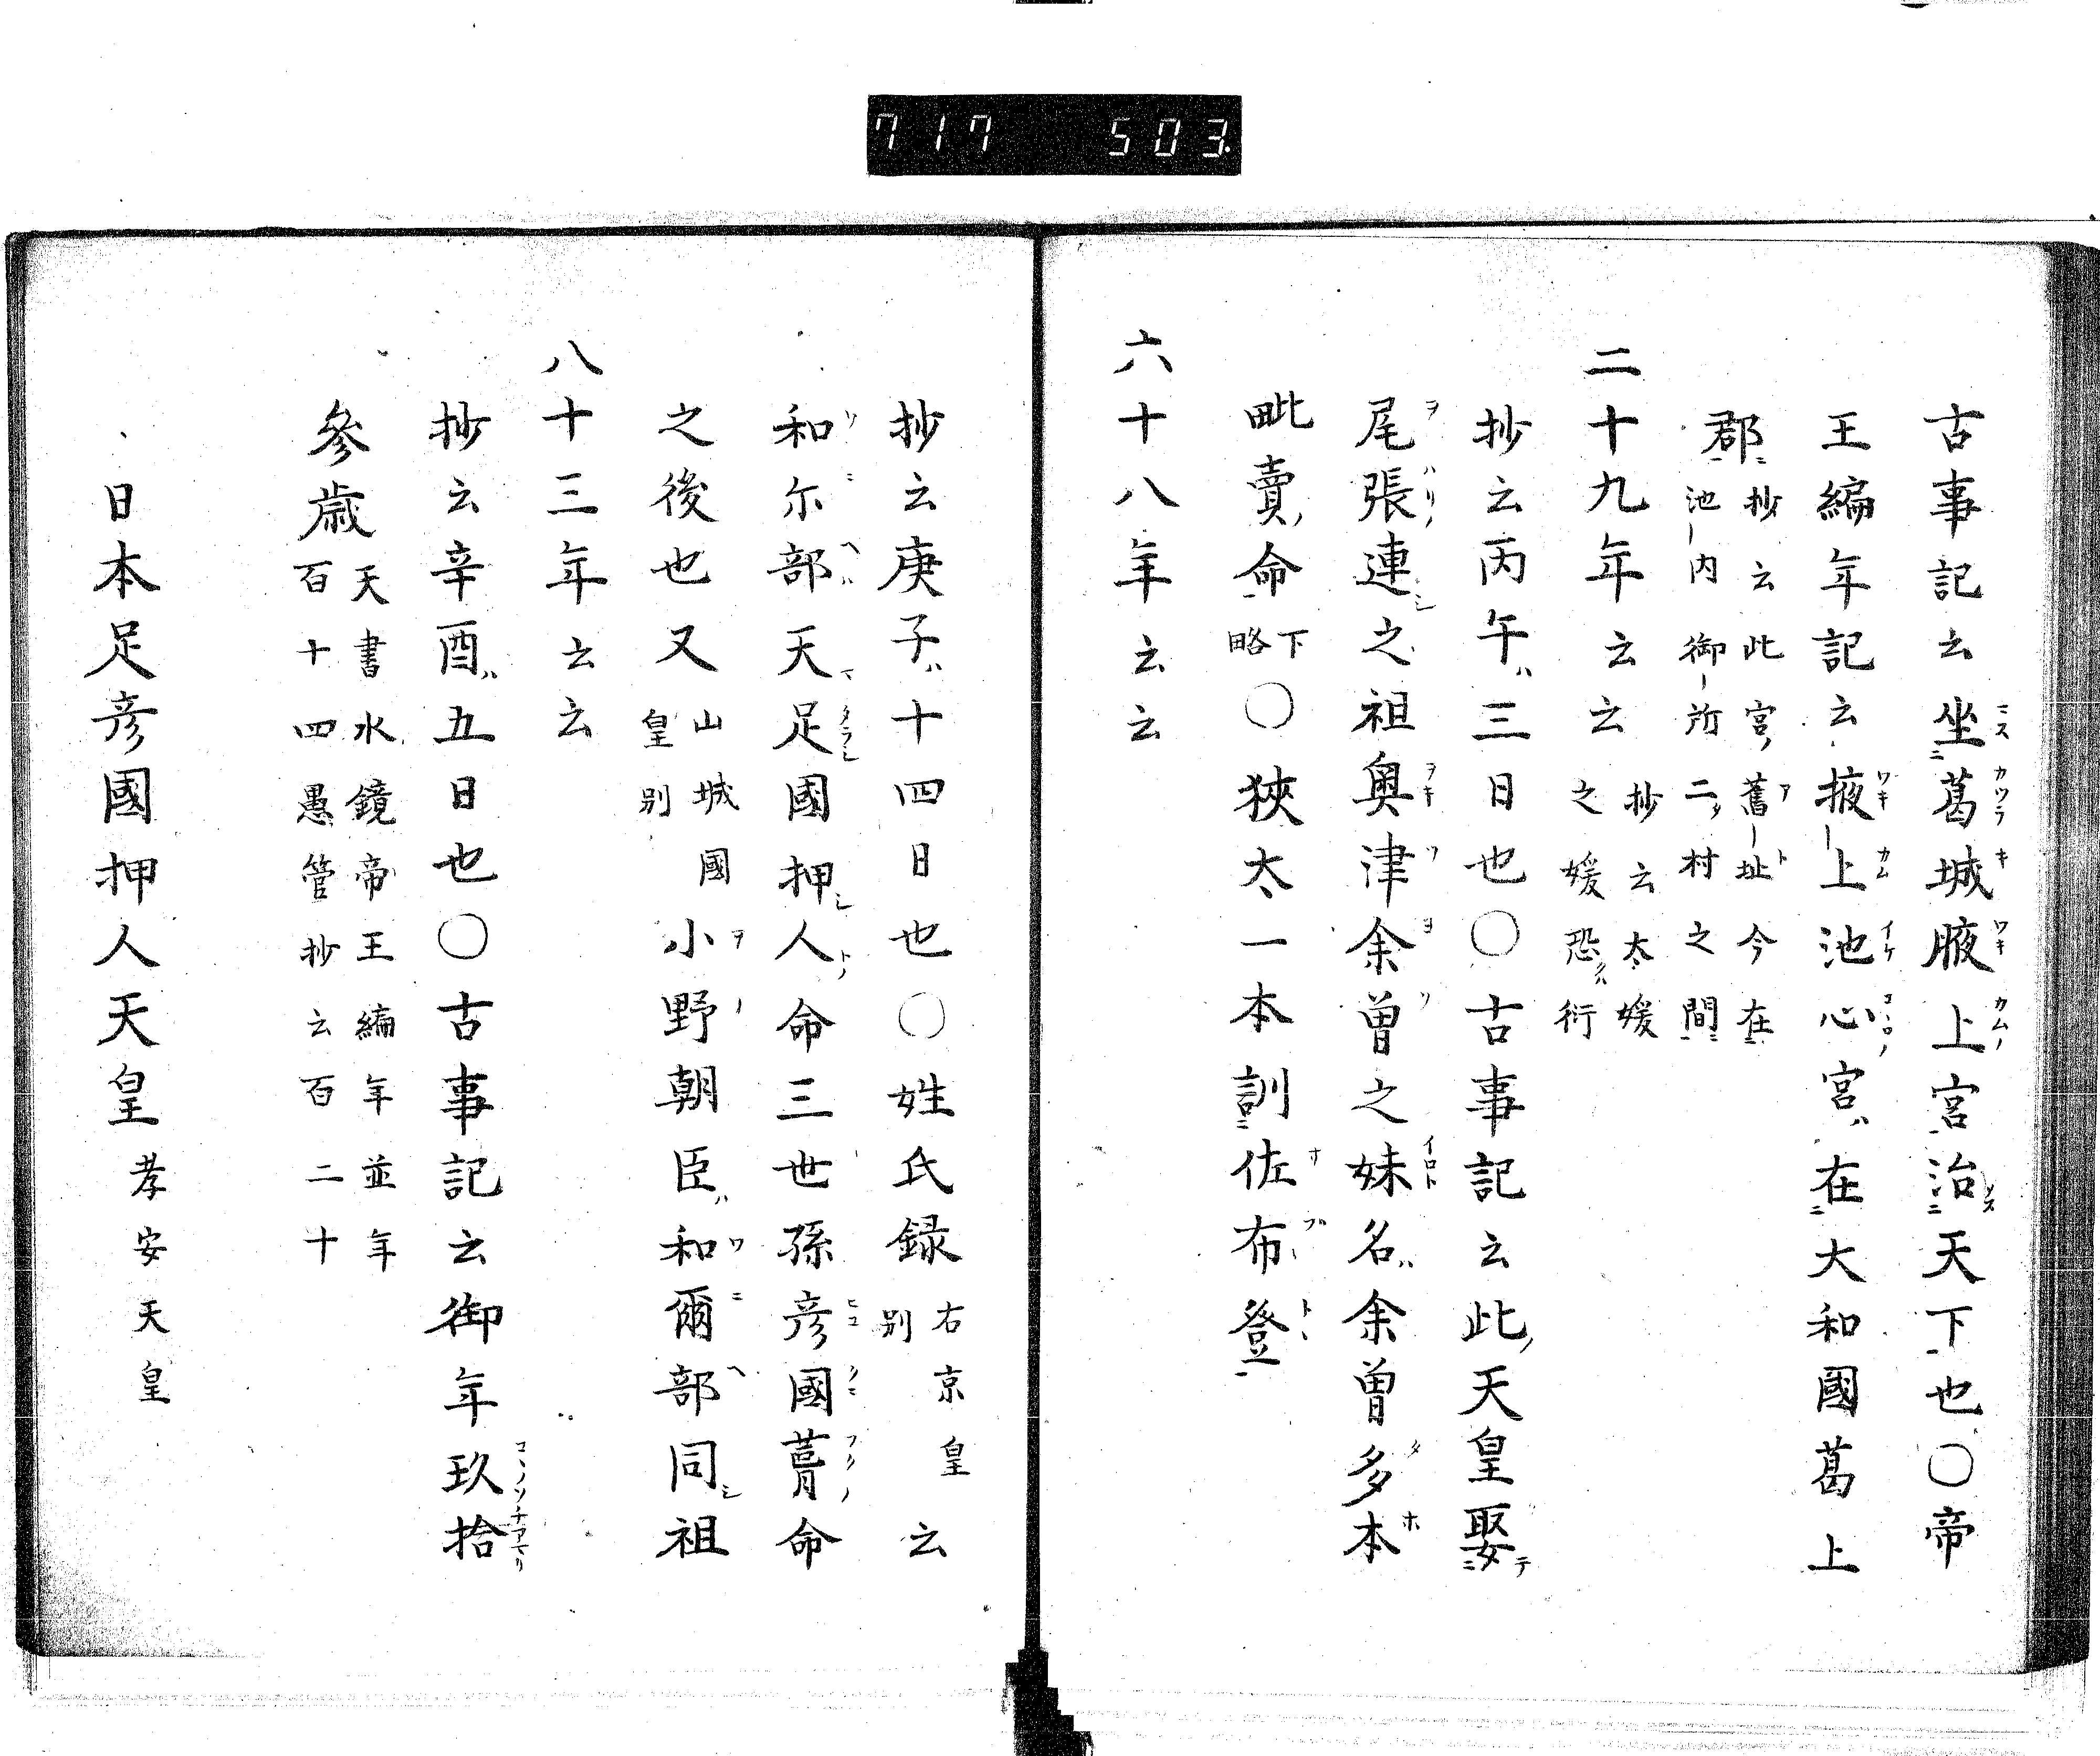 717 503.
古事記云坐葛城腋上宮治天下也〇帝
王編年記云掖上池心宮在大和國葛上
郡抄云此宮舊址今在
池内御所二村之間
二十九年云云抄云太媛
之媛恐衍
抄云丙午三日也〇古事記云此天皇娶
尾張連之祖奥津余曽之妹名余曽多本
毗賣命下
略〇狹太一本訓佐布登
六十八年云云
抄云庚子十四日也〇姓氏録右京皇
別云
和尓部天足國押人命三世孫彦國葺命
之後也又山城國
皇別小野朝臣和爾部同祖
八十三年云云
抄云辛酉五日也〇古事記云御年玖拾
參歳天書水鏡帝王編年並年
百十四愚管抄云百二十
日本足彦國押人天皇孝安天皇